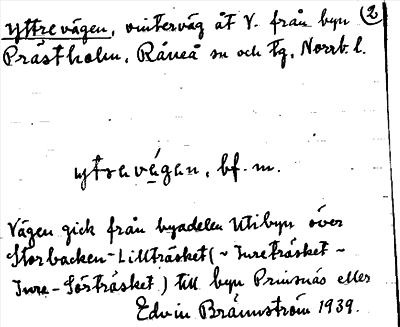 yttrevägen, vinterväg åt V. från byn (2)
Prästholm, Råneå sn och tg, Norrb. l.
ytravägan, bf. m.
Vägen gick från byadelen Utibyn över
Storbacken-Lillträsket (~ Inreträsket ~
Inre-Sörträsket) till byn Prinsnäs eller
Edvin Brännström 1939.